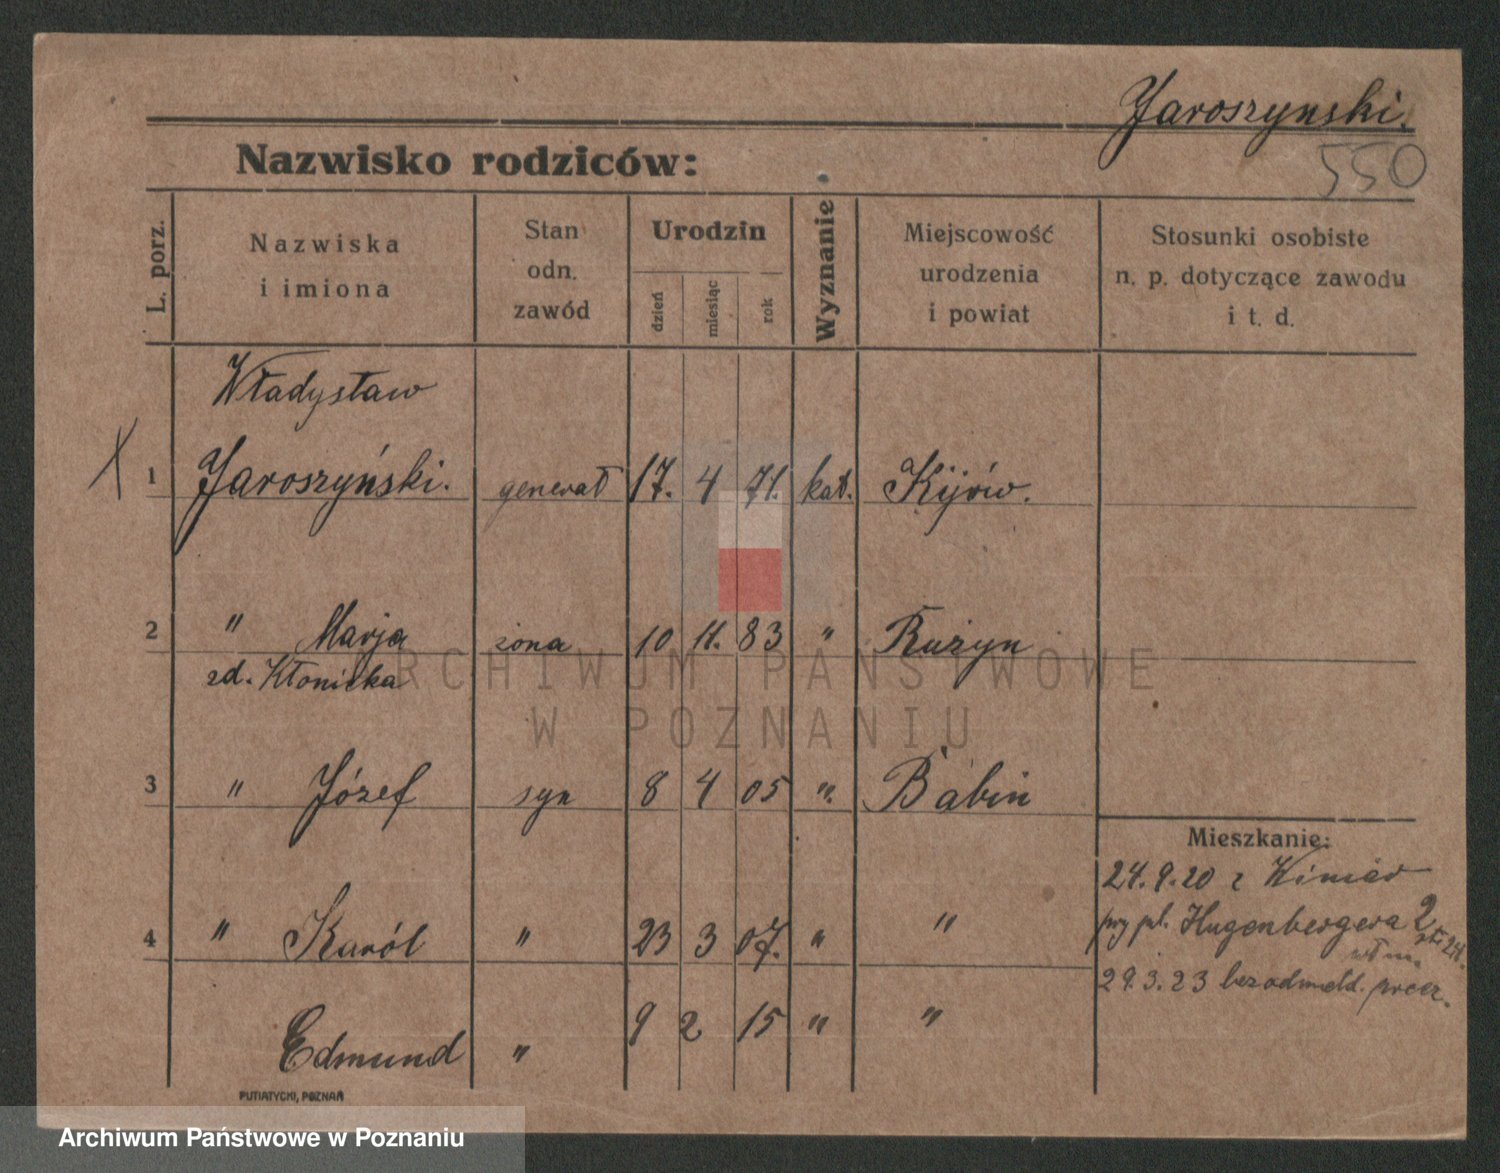 Jaroszynski.
550
Nazwisko rodziców:
L. porz.
Nazwiska
i imiona
Stan
odn.
zawód
Urodzin
dzień
miesiąc
rok
Wyznanie
Miejscowość
urodzenia
i powiat
Stosunki osobiste
n. p. dotyczące zawodu
i t. d.
Władysław
1 Jaroszyński. generał 17. 4 71. kat. Kijów.
2 " Marja żona 10 11. 83 " Rużyn
zd. Kłonicka
3 " Józef syn 8 4 05 ". Babin
Mieszkanie:
24.9.20 z
4 " Karól " 23 3 07. " "
przy pl. Hugenbergera 2
29.3.23 bez odmeld.
Edmund " 9 2 15 " "
PUTIATYCKI, POZNAŃ
ARCHIWUM PAŃSTWOWE
W POZNANIU
Archiwum Państwowe w Poznaniu